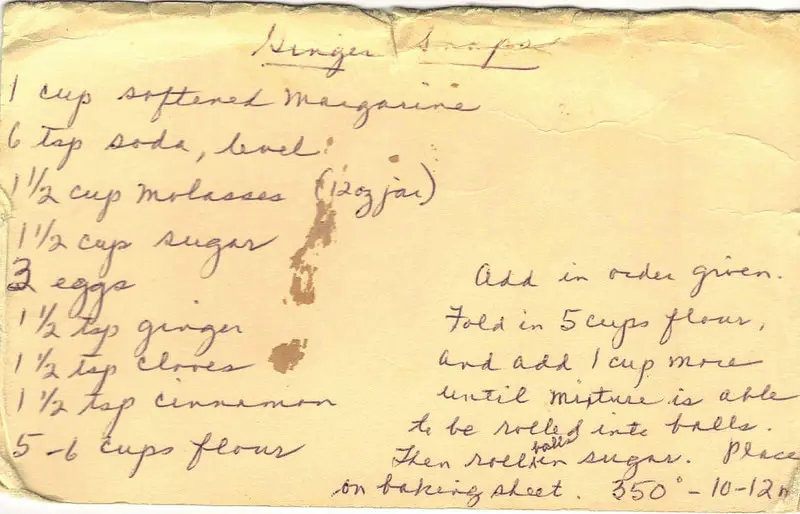 Ginger Snaps
1 cup softened Margarine
6 tsp soda, level
1 1/2 cup Molasses (12oz jar)
1 1/2 cup sugar
3 eggs
1 1/2 tsp ginger
1 1/2 tsp cloves
1 1/2 tsp cinnamon
5-6 cups flour
Add in order given.
Fold in 5 cups flour,
and add 1 cup more
until mixture is able
to be rolled into balls.
Then roll balls in sugar. Place
on baking sheet. 350° - 10-12m